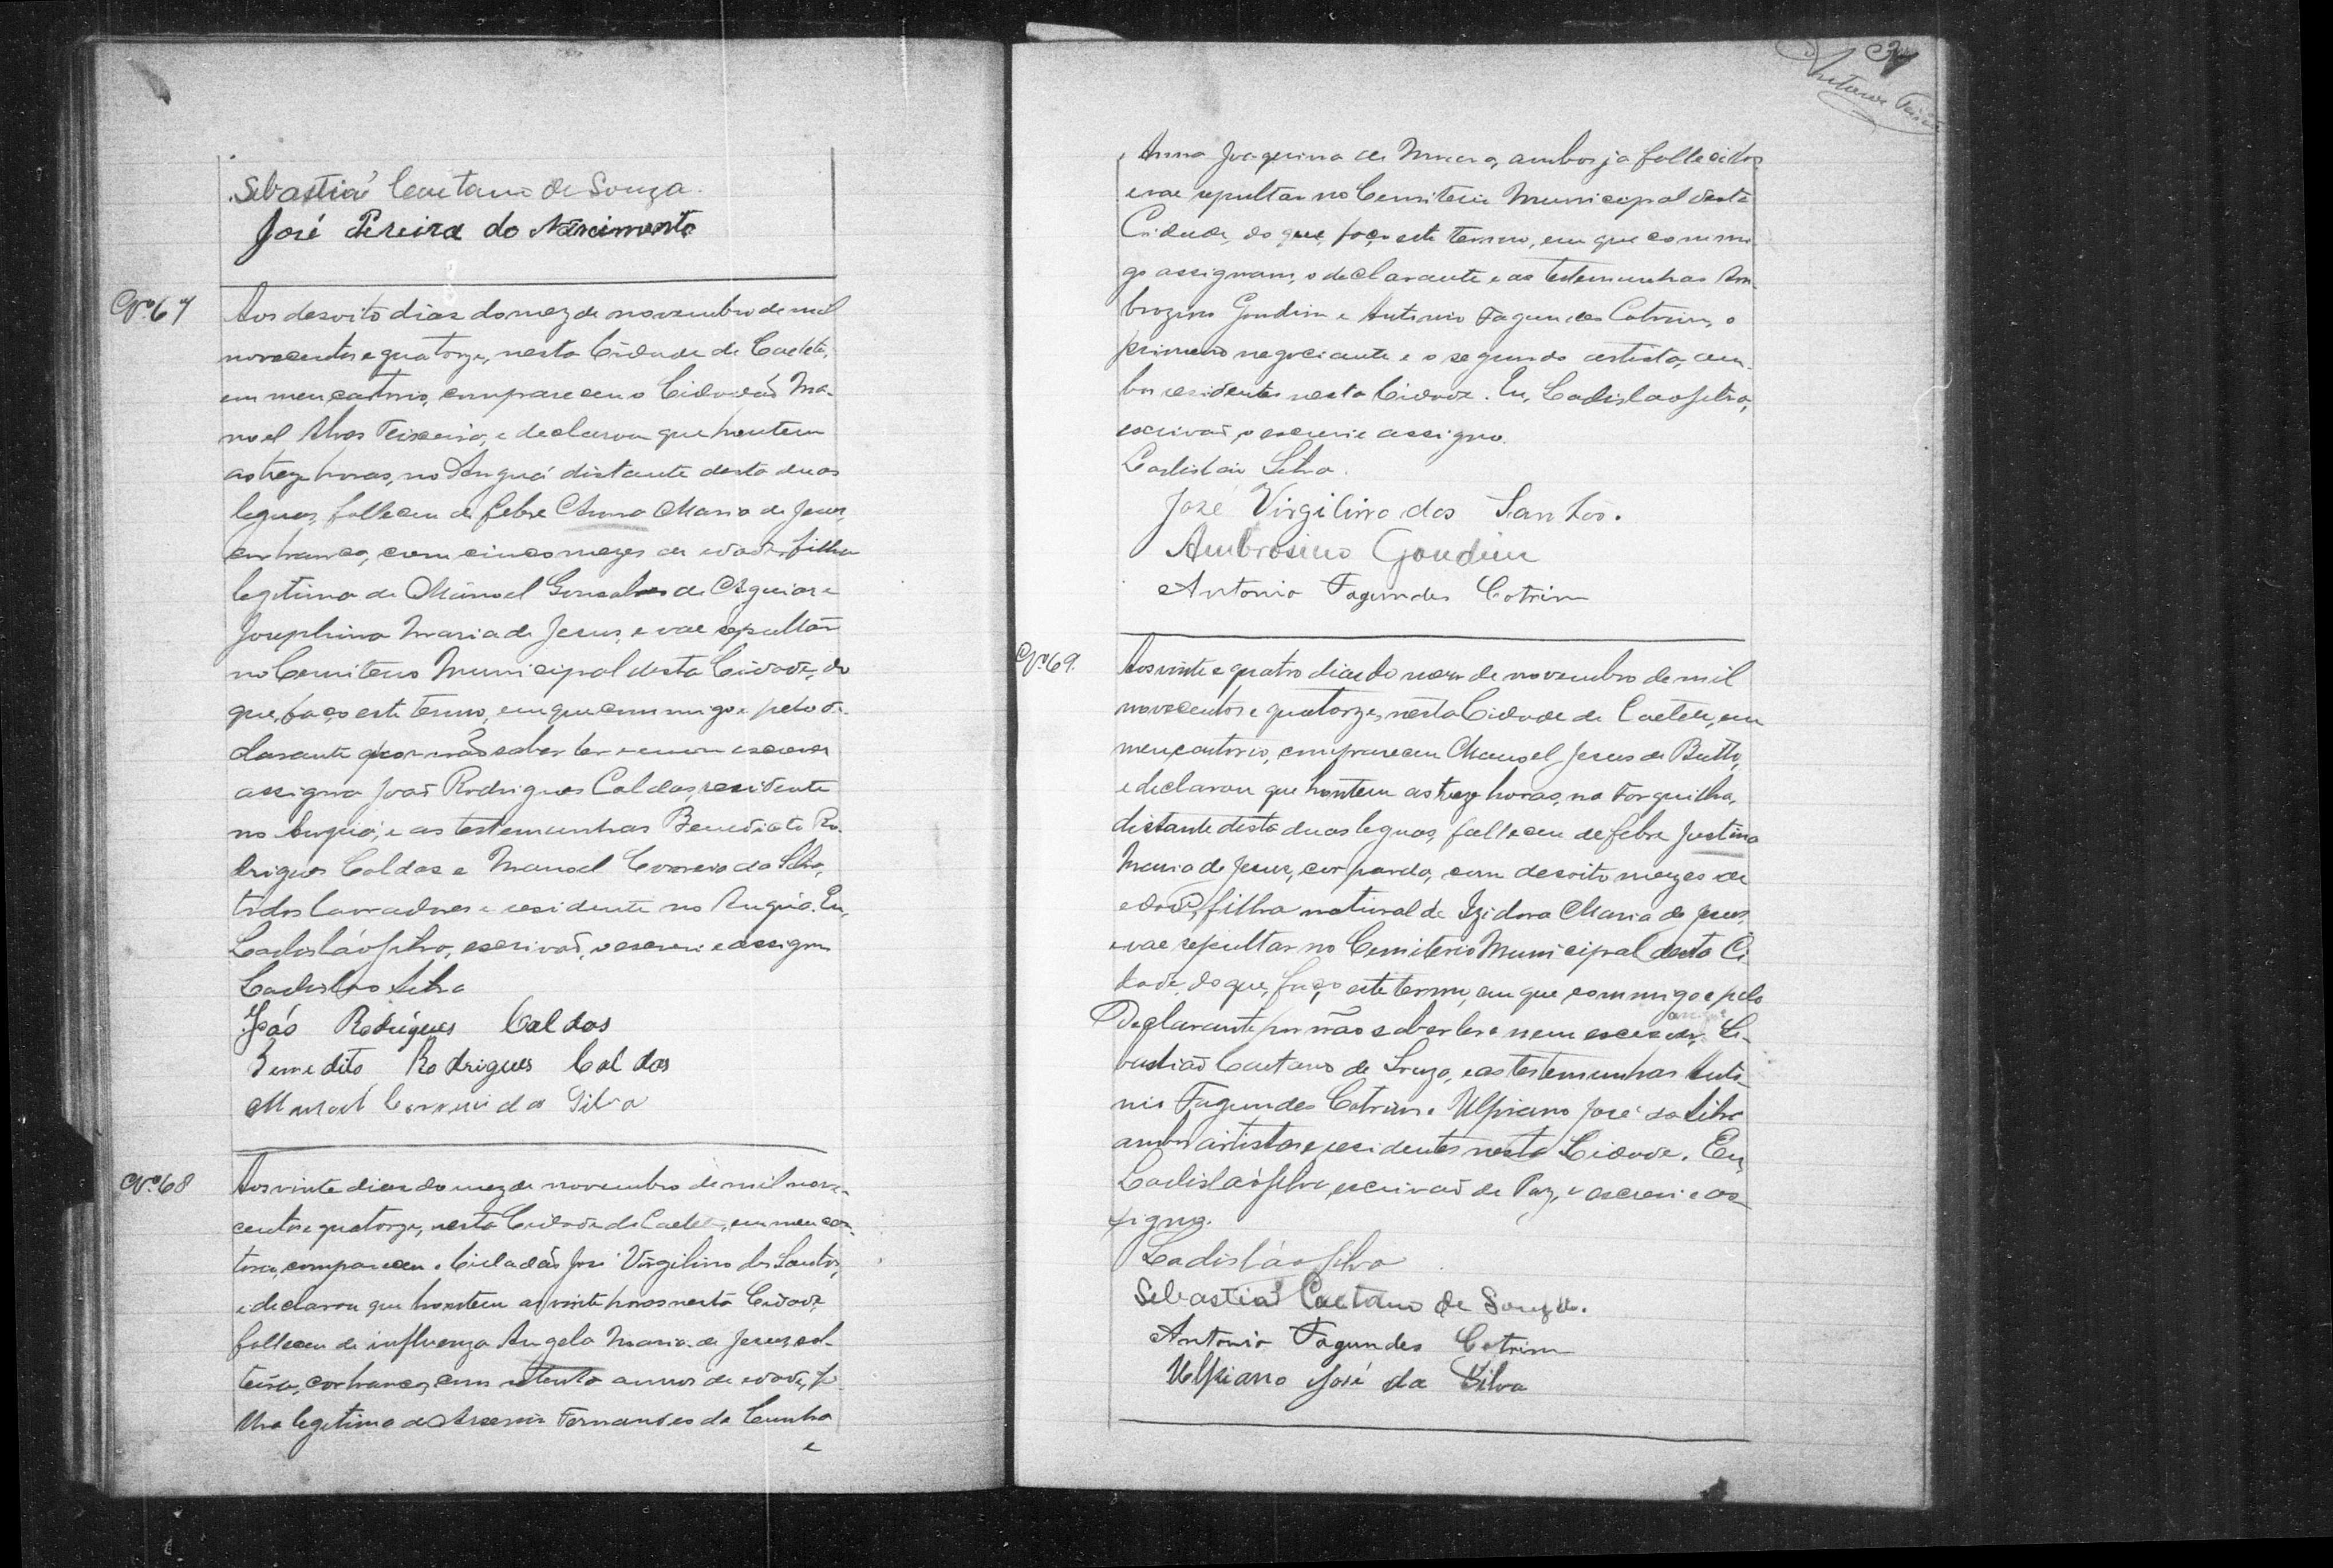 Sebastião Caetano de Souza.
José Pereira do Nascimento
Nº 67
Aos desoito dias do mez de novembro de mil
novecentos e quatorze, nesta Cidade de Caeteté,
em meu cartorio, compareceu o Cidadão Ma-
noel Alves Teixeira, e declarou que hontem
as treze horas, no Anguá distante desta duas
leguas, falleceu de febre Anna Maria de Jesus,
cor branca, com cinco mezes de edade, filha
legitima de Manoel Gonsalves de Aguiar e
Josephina Maria de Jesus, e vae sepultar
no Cemiterio Municipal desta Cidade, do
que, faço este termo, em que commigo e pelo de-
clarante por não saber ler e nem escrever
assigna João Rodrigues Caldas, residente
no Anguá, e as testemunhas Benedicto Ro-
drigues Caldas e Manoel Correia da Silva,
todos lavradores e residente no Anguá. Eu,
Ladisláo Silva, escrivão, o escrevi e assigno
Ladislao Silva
João Rodrigues Caldas
Benedito Rodrigues Caldas
Manoel Correia da Silva
Nº 68
Aos vinte dias do mez de novembro de mil nove-
centos e quatorze, nesta Cidade de Caeteté, em meu car-
torio, compareceu o Cidadão José Virgilino dos Santos,
e declarou que hontem as vinte horas nesta Cidade
falleceu de influenza Angela Maria de Jesus, sol-
teira, cor branca, com setenta annos de edade, fi-
lha legitima de Arsenio Fernandes da Cunha
e
Anna Joaquina de Moura, ambos ja fallecidos
e vae sepultar no Cemiterio Municipal desta
Cidade, do que, faço este termo, em que commi-
go assignam, o declarante e as testemunhas Am-
brozino Gondim e Antonio Fagundes Cotrim, o
primeiro negociante e o segundo artista, am-
bos residentes nesta Cidade. Eu, Ladislao Silva,
escrivão, o escrevi e assigno.
Ladislao Silva.
José Virgilino dos Santos.
Ambrosino Gondim
Antonio Fagundes Cotrim
Nº 69.
Aos vinte e quatro dias do mez de novembro de mil
novecentos e quatorze, nesta Cidade de Caeteté, em
meu cartorio, compareceu Manoel Jesus de Britto,
e declarou que hontem as treze horas, na Forquilha,
distante desta duas leguas, falleceu de febre Justina
Maria de Jesus, cor parda, com desoito mezes de
edade, filha natural de Izidora Maria de Jesus,
e vae sepultar no Cemiterio Municipal desta Ci-
dade, do que, faço este termo, em que commigo e pelo
Declarante por não saber ler e nem escrever, assigna Se-
bastião Caetano de Souza, e as testemunhas Anto-
nio Fagundes Cotrim e Ulpiano José da Silva
ambos artistas e residentes nesta Cidade. Eu,
Ladisláo Silva, escrivão de Paz, o escrevi e as-
signo.
Ladisláo Silva
Sebastião Caetano de Souza.
Antonio Fagundes Cotrim
Ulpiano José da Silva